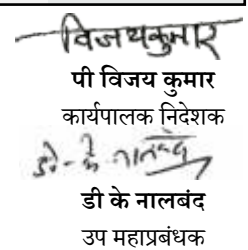 विजयकुमार
पी विजय कुमार
कार्यपालक निदेशक
डी. के नालबंद
डी के नालबंद
उप महाप्रबंधक